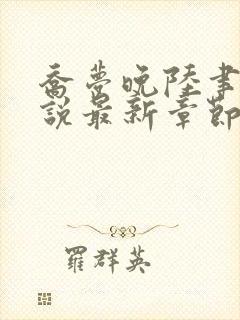 喬夢晚陸書
說最新章節
羅群英